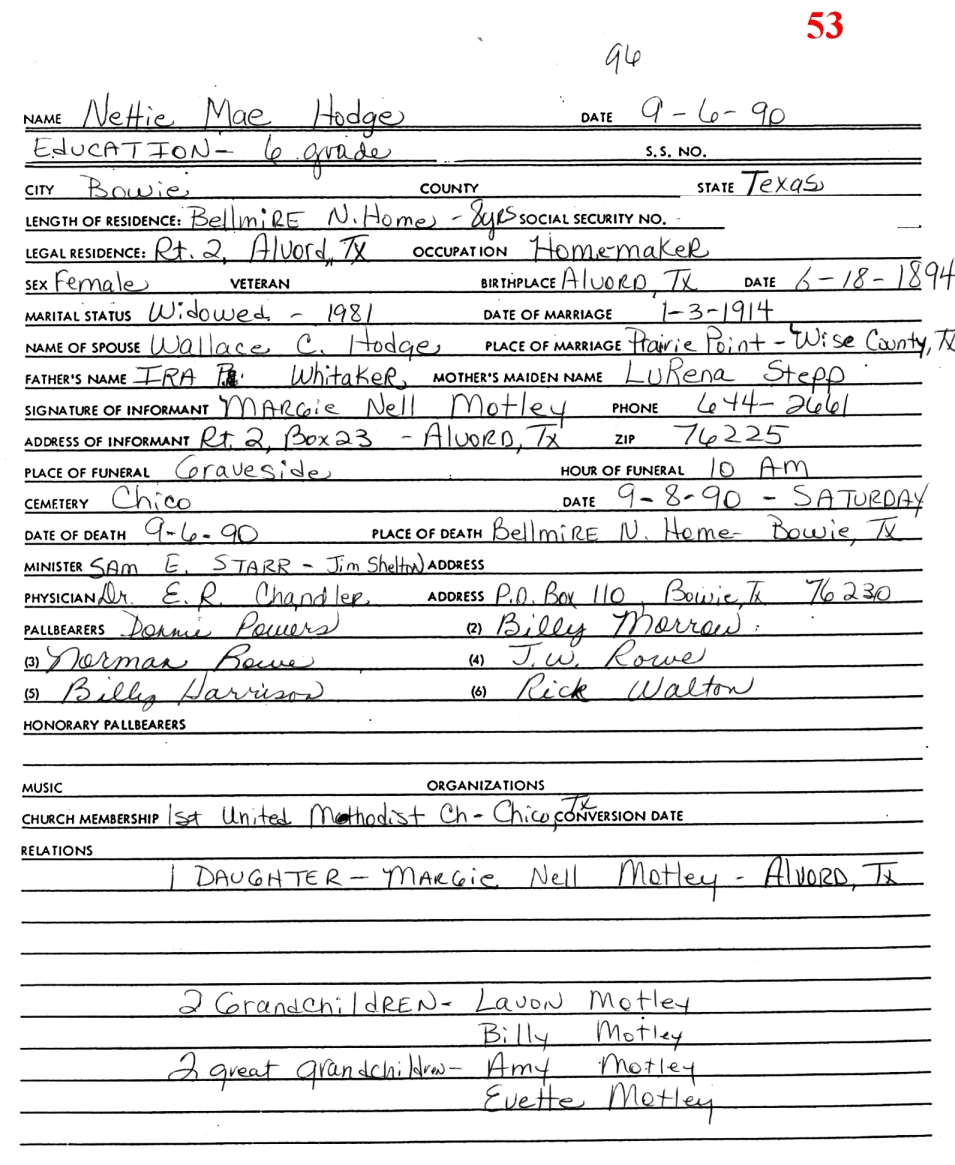 53
96
NAME Nettie Mae Hodge DATE 9-6-90
EDUCATION- 6 grade S.S. NO.
CITY Bowie COUNTY STATE Texas
LENGTH OF RESIDENCE: BellmiRE N. Home - 8yRS SOCIAL SECURITY NO.
LEGAL RESIDENCE: Rt. 2, Alvord, Tx OCCUPATION HomemakeR
SEX Female VETERAN BIRTHPLACE AlvoRD, Tx DATE 6-18-1894
MARITAL STATUS Widowed - 1981 DATE OF MARRIAGE 1-3-1914
NAME OF SPOUSE Wallace C. Hodge PLACE OF MARRIAGE Prairie Point - Wise County, Tx
FATHER'S NAME IRA WhitakeR MOTHER'S MAIDEN NAME LuRena Stepp
SIGNATURE OF INFORMANT MARGie Nell Motley PHONE 644-2661
ADDRESS OF INFORMANT Rt. 2, Box 23 - AlvoRD, Tx ZIP 76225
PLACE OF FUNERAL Graveside HOUR OF FUNERAL 10 Am
CEMETERY Chico DATE 9-8-90 - SATURDAY
DATE OF DEATH 9-6-90 PLACE OF DEATH BellmiRE N. Home - Bowie, Tx
MINISTER SAm E. STARR - Jim Shelton ADDRESS
PHYSICIAN Dr. E. R. Chandler ADDRESS P.O. Box 110, Bowie, Tx 76230
PALLBEARERS Donnie Powers (2) Billy Morrow
(3) Norman Rowe (4) J.W. Rowe
(5) Billy Harrison (6) Rick Walton
HONORARY PALLBEARERS
MUSIC ORGANIZATIONS
CHURCH MEMBERSHIP 1st United Methodist Ch - Chico, Tx CONVERSION DATE
RELATIONS
1 DAUGHTER - MARGie Nell Motley - AlvoRD, Tx
2 GrandchildREN - Lavon Motley
Billy Motley
2 great grandchildren - Amy Motley
Evette Motley